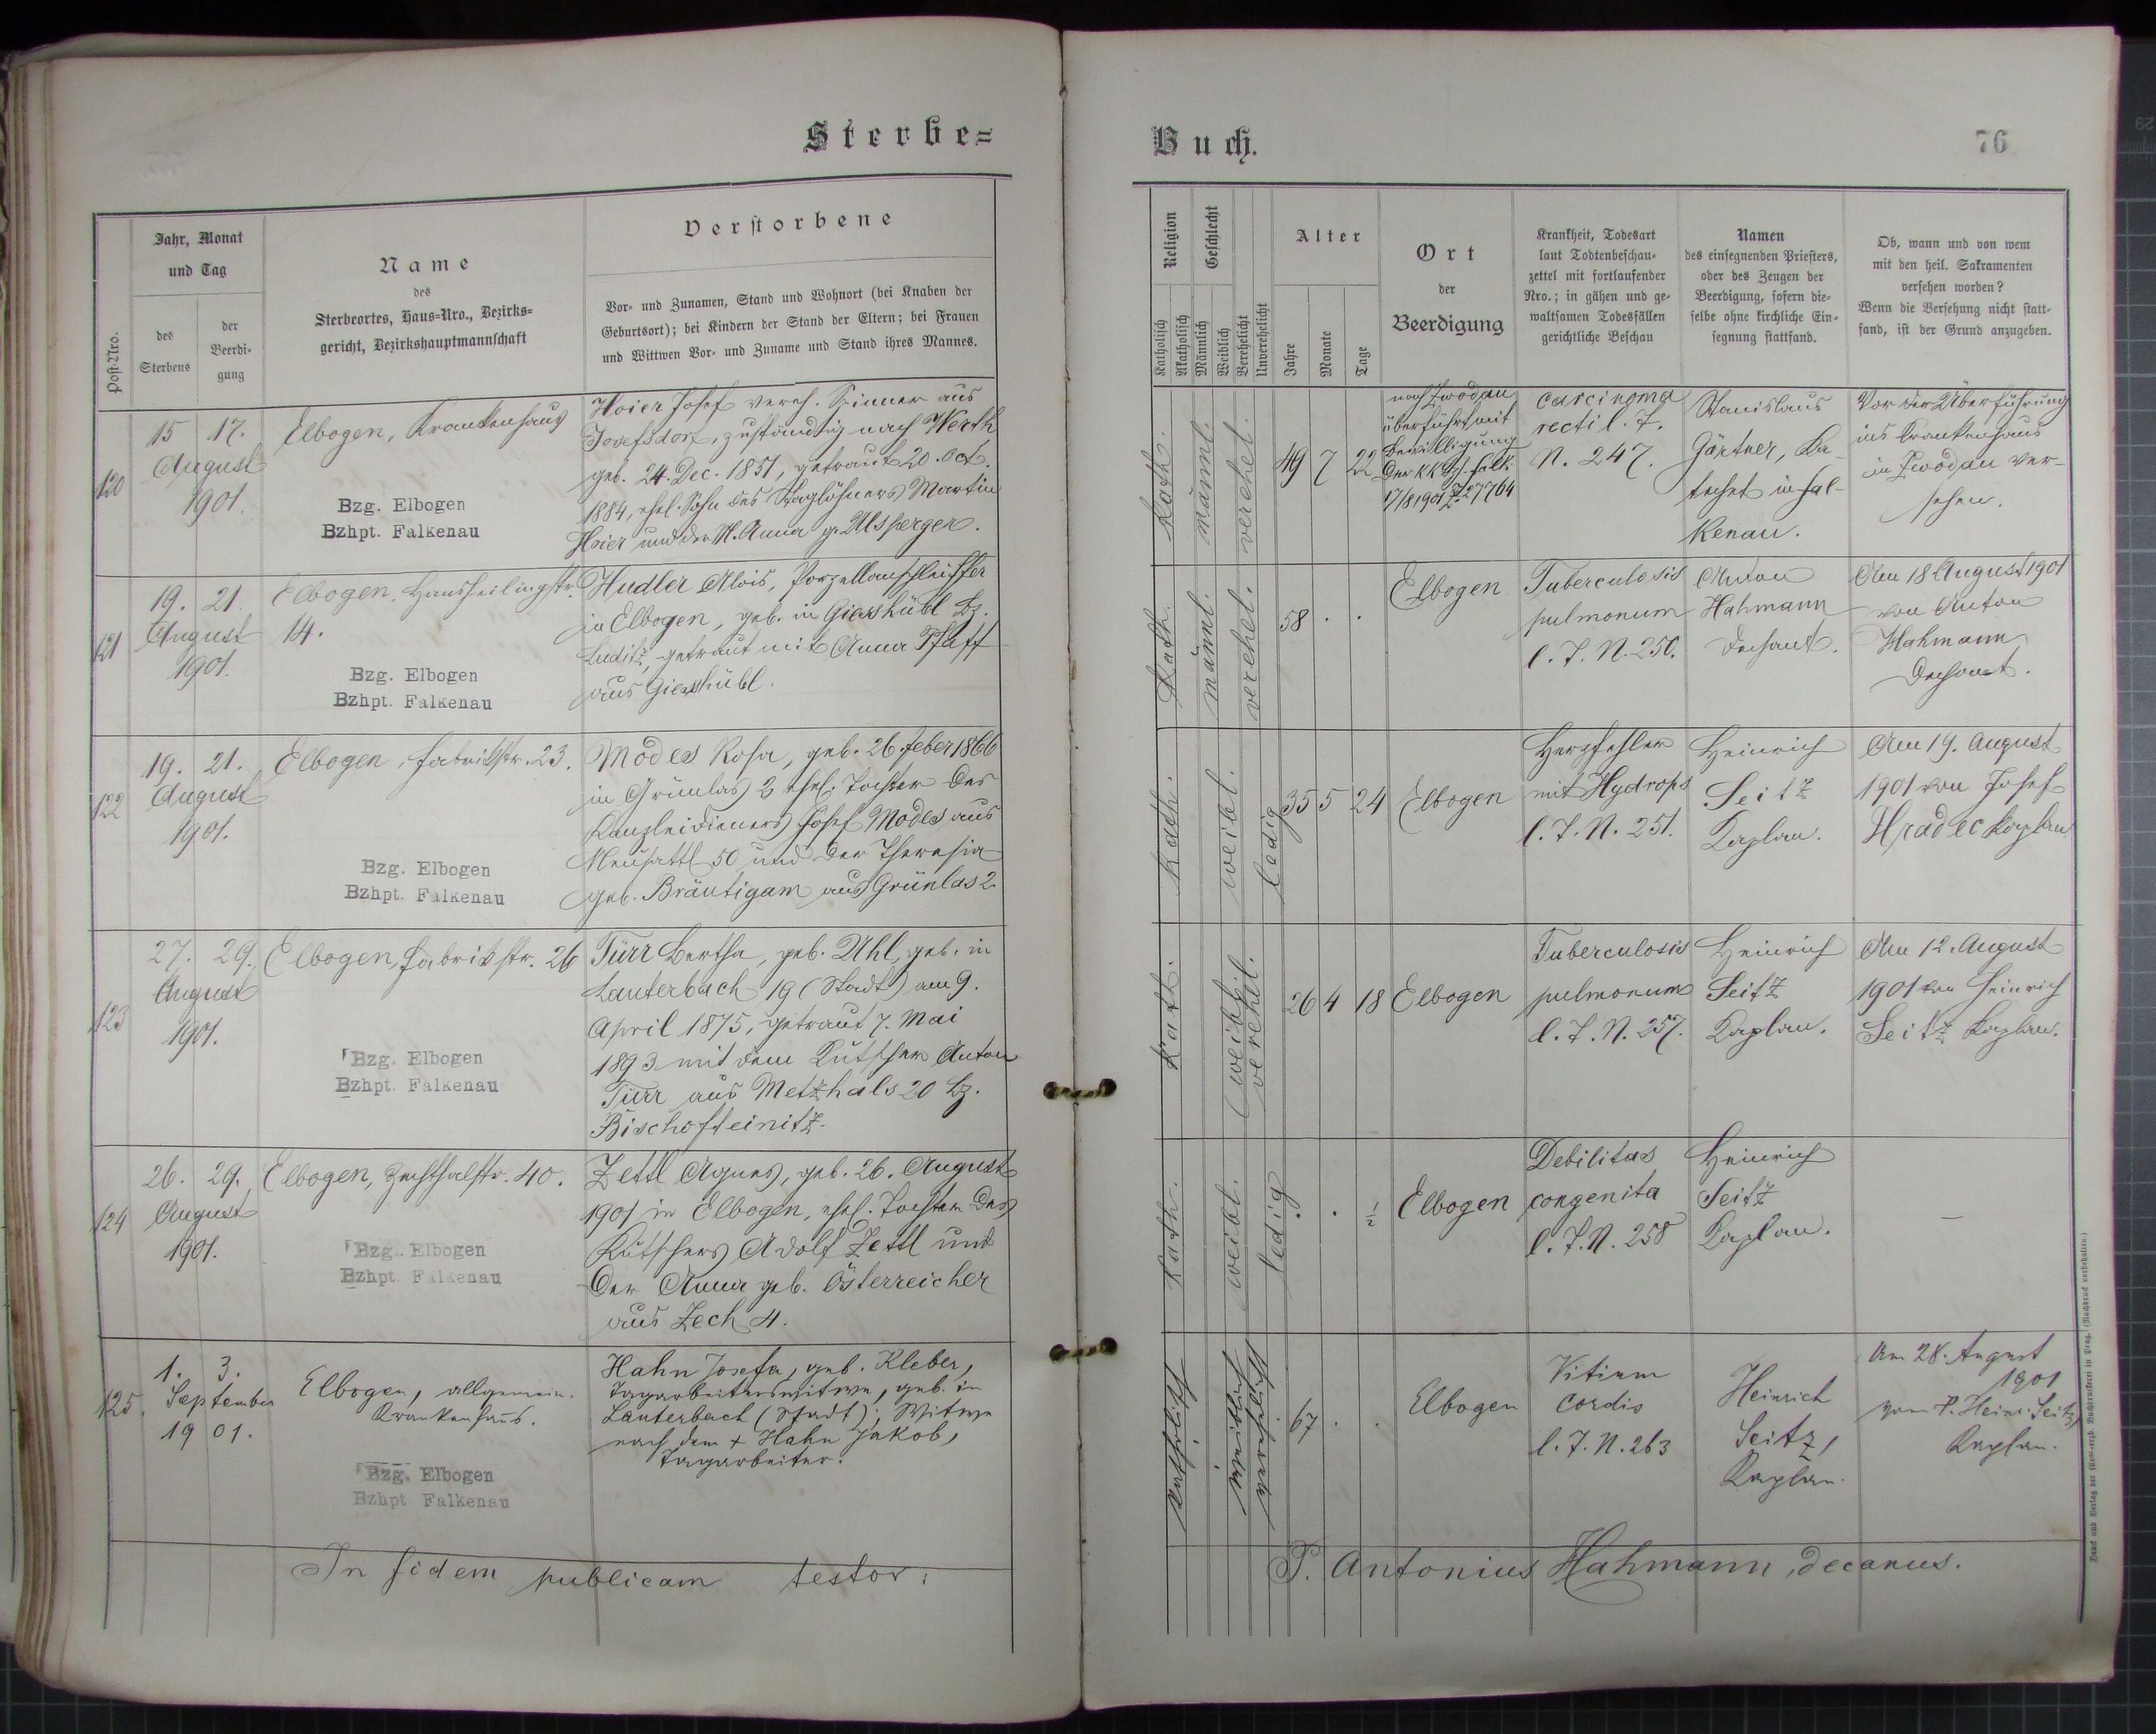 Sterbe=
Jahr, Monat
und Tag
Post-Nro.
des
Sterbens
der
Beerdi-
gung
Name
des
Sterbeortes, Haus-Nro., Bezirks-
gericht, Bezirkshauptmannschaft
Verstorbene
Vor- und Zunamen, Stand und Wohnort (bei Knaben der
Geburtsort); bei Kindern der Stand der Eltern; bei Frauen
und Wittwen Vor- und Zuname und Stand ihres Mannes.
120
15 17.
August
1901.
Elbogen, Krankenhaus
Bzg. Elbogen
Bzhpt. Falkenau
Hoier Josef vereh. Spinner aus
Josefsdorf, zuständig nach Werth
geb. 24. Dec. 1851, getraut 20. Oct.
1884, ehel. Sohn des Taglöhners Martin
Hoier und der M. Anna g. Ulsperger.
121
19. 21.
August
1901.
Elbogen, Hansheilingstr.
14.
Bzg. Elbogen
Bzhpt. Falkenau
Hudler Alois, Porzellanschleiffer
in Elbogen, geb. in Giesshübl Bz.
Luditz, getraut mit Anna Pfaff
aus Giesshübl.
122
19. 21.
August
1901.
Elbogen, Fabrikstr. 23.
Bzg. Elbogen
Bzhpt. Falkenau
Modes Rosa, geb. 26. Feber 1866
in Grünlas 2 ehel. Tochter des
Kanzleidieners Josef Modes aus
Neusattl 50 und der Theresia
geb. Bräutigam aus Grünlas 2.
123
27. 29.
August
1901.
Elbogen, Fabrikstr. 26
Bzg. Elbogen
Bzhpt. Falkenau
Türr Bertha, geb. Uhl, geb. in
Lauterbach 19 (Stadt) am 9.
April 1875, getraut 7. Mai
1893 mit dem Kutscher Anton
Türr aus Metzhals 20 Bz.
Bischofteinitz.
124
26. 29.
August
1901.
Elbogen, Zechthalstr. 40.
Bzg. Elbogen
Bzhpt. Falkenau
Zettl Agnes, geb. 26. August
1901 in Elbogen, ehel. Tochter des
Kutschers Adolf Zettl und
der Anna geb. Österreicher
aus Zech 4.
125.
1. 3.
September
1901.
Elbogen, allgemein.
Krankenhaus.
Bzg. Elbogen
Bzhpt Falkenau
Hahn Josefa, geb. Kleber,
Tagarbeiterswitwe, geb. in
Lauterbach (Stadt); Witwe
nach dem + Hahn Jakob,
Tagarbeiter.
In fidem publicam testor:
Buch.
76
Religion
Katholisch
Akatholisch
Geschlecht
Männlich
Weiblich
Verehelicht
Unverehelicht
Alter
Jahre
Monate
Tage
Ort
der
Beerdigung
Krankheit, Todesart
laut Todtenbeschau-
zettel mit fortlaufender
Nro.; in gähen und ge-
waltsamen Todesfällen
gerichtliche Beschau
Namen
des einsegnenden Priesters,
oder des Zeugen der
Beerdigung, sofern die-
selbe ohne kirchliche Ein-
segnung stattfand.
Ob, wann und von wem
mit den heil. Sakramenten
versehen worden?
Wenn die Versehung nicht statt-
fand, ist der Grund anzugeben.
Kath.
männl.
verehel.
49 7 22
nach Zwodau
überführt mit
Bewilligung
der KK
17/8 1901 Z. 27764
carcinoma
recti l. Z.
N. 247.
Stanislaus
Gärtner, Ka-
techet in Fal-
kenau.
Vor der Überführung
ins Krankenhaus
in Zwodau ver-
sehen.
Kath.
männl.
verehel.
58 . .
Elbogen
Tuberculosis
pulmonum
l. Z. N. 250.
Anton
Hahmann
Dechant.
Am 18 August 1901
von Anton
Hahmann
Dechant.
Kath.
weibl.
ledig
35 5 24
Elbogen
Herzfehler
mit Hydrops
l. Z. N. 251.
Heinrich
Seitz
Kaplan.
Am 19. August
1901 von Josef
Hradec Kaplan
Kath.
weibl.
verehel.
26 4 18
Elbogen
Tuberculosis
pulmonum
l. Z. N. 257.
Heinrich
Seitz
Kaplan.
Am 12. August
1901 von Heinrich
Seitz Kaplan.
Kath.
weibl.
ledig
. . ½
Elbogen
Debilitas
congenita
l. Z. N. 258
Heinrich
Seitz
Kaplan.
—
katholisch
weiblich
verehelicht
67 . .
Elbogen
Vitium
cordis
l. Z. N. 263
Heinrich
Seitz,
Kaplan.
Am 28. August
1901
vom P. Heinr. Seitz,
Kaplan.
P. Antonius Hahmann, decanus.